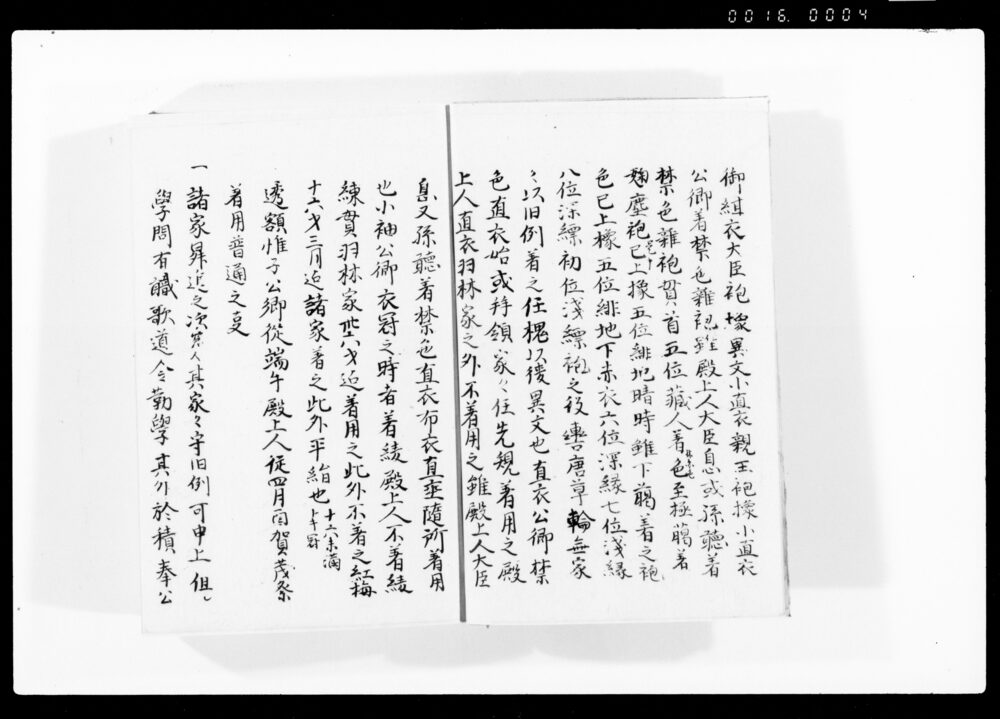 0016. 0004
御緋衣大臣袍橡異文小直衣親王袍橡小直衣
公卿着禁色雜袍雖殿上人大臣息或孫聽着
禁色雜袍貫首五位藏人着色至極﨟着
麹塵袍已上橡五位緋地晴時雖下﨟着之袍
色已上橡五位緋地下赤衣六位深緑七位浅緑
八位深縹初位浅縹袍之紋轡唐草輪無家
々以旧例着之任槐以後異文也直衣公卿禁
色直衣始或拝領家々任先規着用之殿
上人直衣羽林家之外不着用之雖殿上人大臣
息又孫聽着禁色直衣布衣直垂隨所着用
也小袖公卿衣冠之時者着綾殿上人不着綾
練貫羽林家卅六才迄着用之此外不着之紅梅
十六才三月迄諸家着之此外平絹也十六未満
透額帷子公卿從端午殿上人従四月酉賀茂祭
着用普通之事
一 諸家昇進之次第人其家々守旧例可申上但し
學問有職歌道令勤學其外於積奉公